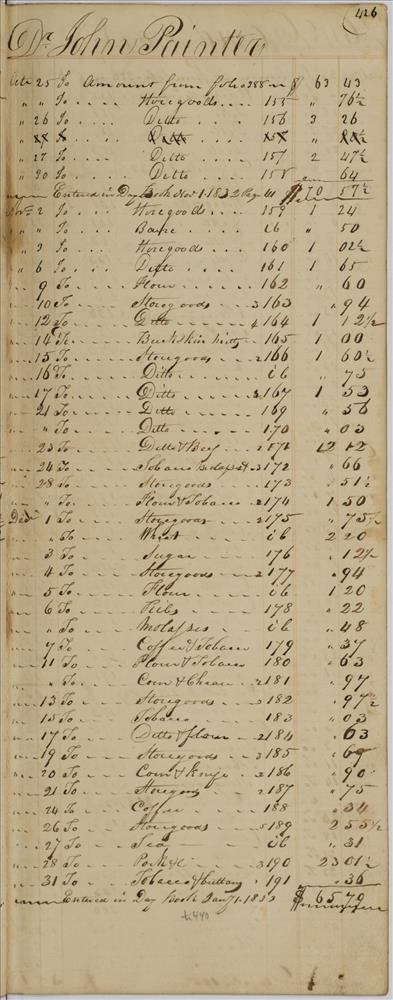 426
Dr. John Painter
25 To Amount from folio 388 $ 63 43
" " To Storegoods 155 " 76½
" 26 To Ditto 156 3 26
" 27 To Ditto 157 2 47½
" 30 To Ditto 158 64
Entered in Day Book Nov 1. 1832 Page 41 $70 57½
Nov. 2 To Storegoods 159 1 24
" " To ib " 50
" 3 To Storegoods 160 1 02½
" 6 To Ditto 161 1 65
" 9 To Flour 162 " 60
10 To Storegoods 163 " 94
12 To Ditto 164 1 12½
14 To Buckskin 165 1 00
15 To Storegoods 166 1 60½
16 To Ditto ib " 75
17 To Ditto 167 1 53
21 To Ditto 169 " 56
" To Ditto 170 " 03
23 To Ditto & 171 12 12
24 To Tobacco 172 " 66
28 To Storegoods 173 51½
" To Flour & Tobacco 174 1 50
Dec 1 To Storegoods 175 " 75½
" To Wheat ib 2 20
3 To Sugar 176 " 12½
4 To Storegoods 177 " 94
5 To Flour ib 1 20
6 To Ribs 178 " 22
" To Molasses ib " 48
7 To Coffee & Tobacco 179 " 37
11 To Flour & Tobacco 180 " 63
" To Corn & 181 " 97
13 To Storegoods 182 " 97½
15 To Tobacco 183 " 03
17 To Ditto & flour 184 " 63
19 To Storegoods 185 " 69
20 To Corn & knife 186 " 90
21 To Storegoods 187 " 75
24 To Coffee 188 " 34
26 To Storegoods 189 2 55½
27 To Tea ib " 31
28 To Pork &c 190 23 01½
31 To Tobacco & buttons 191 " 36
Entered in Day Book Jany 1. 1833 $ 65 79
to 440